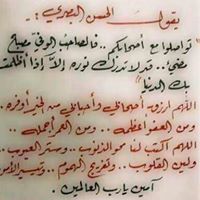 يقول الحسن البصري :ـ
"تواصلوا مع أصحابكم .. فالصاحب الوفي مصباح
مضيء .. قد لا تدرك نوره إلا إذا أظلمت
بك الدنيا"
اللهم ارزق أصحابي وأحبابي من الخير أوفره .
ومن العفو أعظمه .. ومن العمر أجمله ..
اللهم اكتب لنا محو الذنوب .. وستر العيوب ..
ولين القلوب .. وتفريج الهموم .. وتيسير
آمين يارب العالمين .